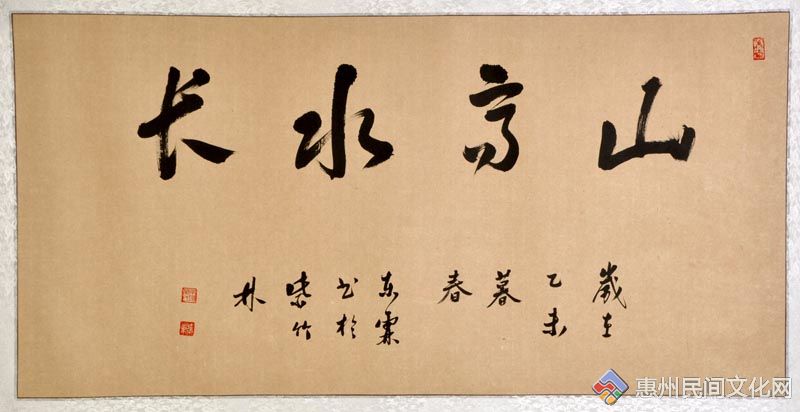 山高水长
岁在
乙未
暮
春
东霖
书于
紫竹
林
惠州民间文化网